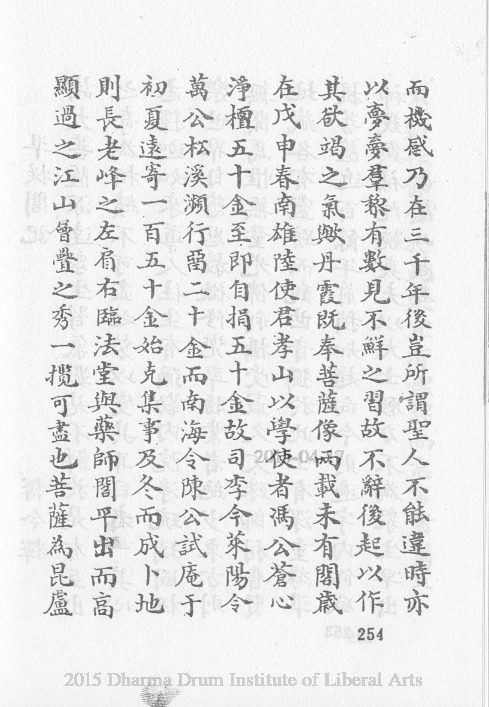 而機感乃在三千年後豈所謂聖人不能違時亦
以夢夢羣黎有數見不鮮之習故不辭後起以作
其欲竭之氣與丹霞既奉菩薩像兩載未有閣歲
在戊申春南雄陸使君孝山以學使者馮公蒼心
淨檀五十金至即自捐五十金故司李今萊陽令
萬公松溪瀕行留二十金而南海令陳公試庵于
初夏遠寄一百五十金始克集事及冬而成卜地
則長老峰之左肩右臨法堂與藥師閣平出而高
顯過之江山曾疊之秀一攬可盡也菩薩為毘盧
254
2015 Dharma Drum Institute of Liberal Arts